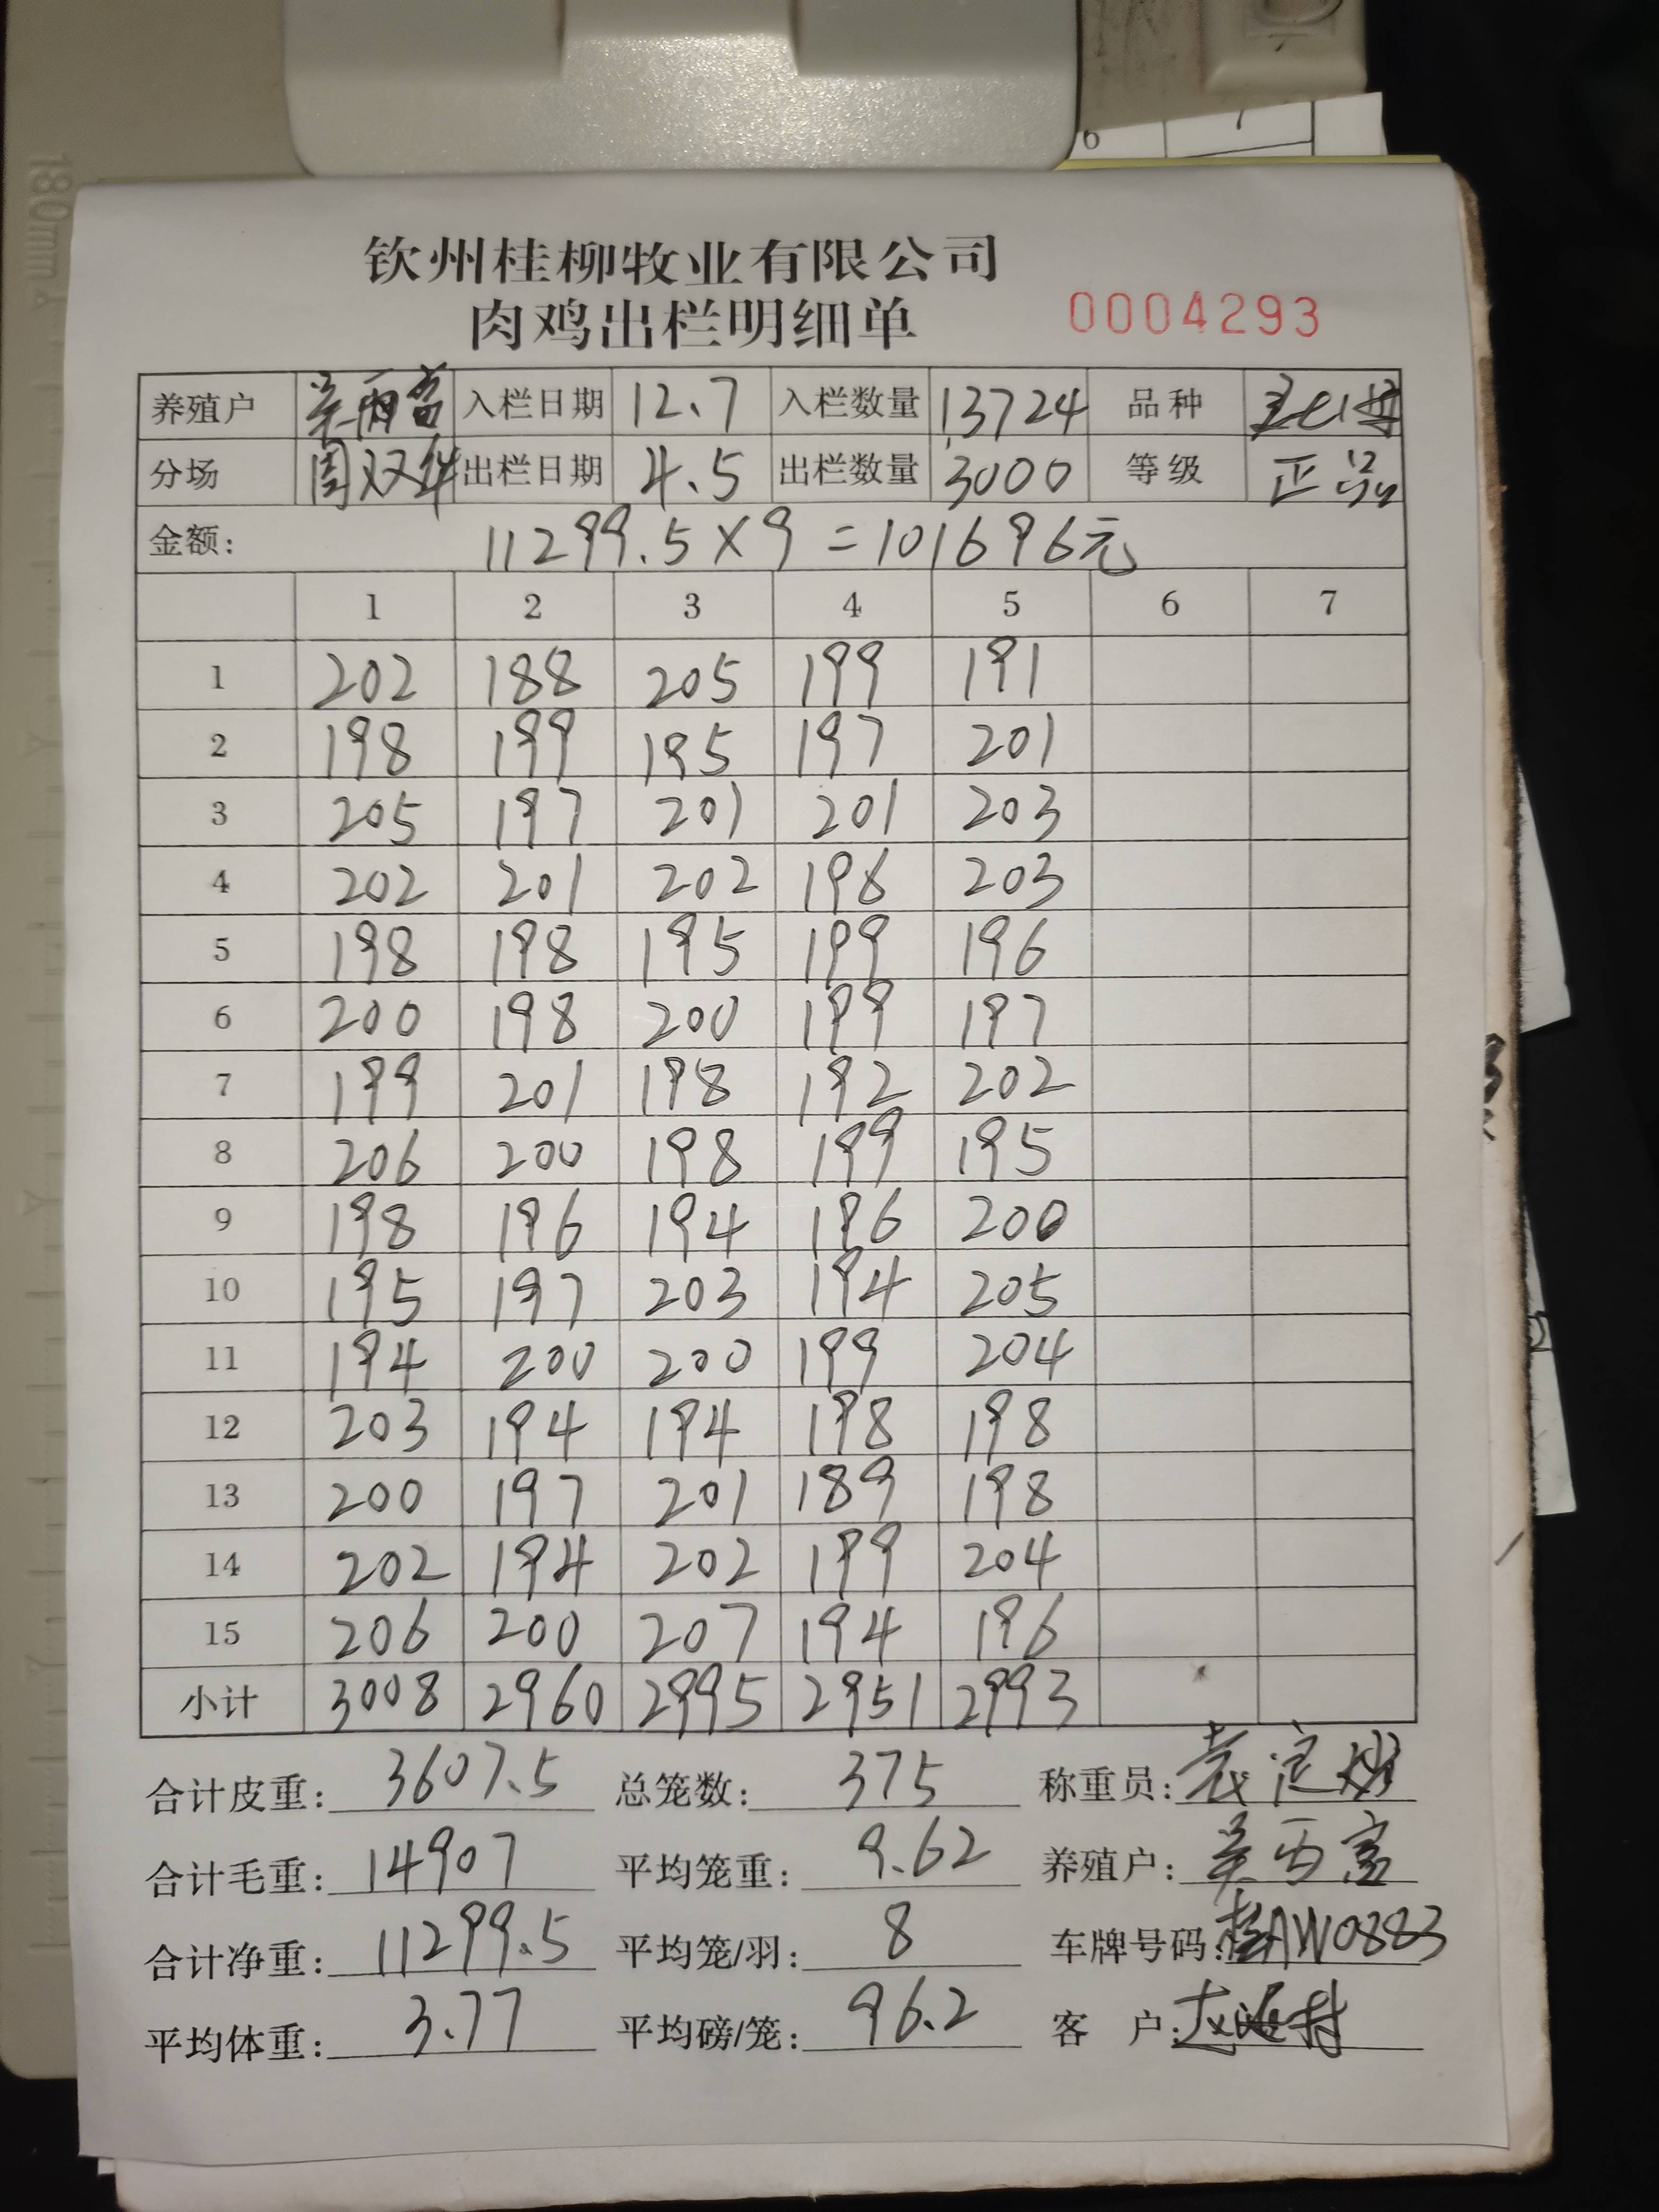 180mm
6 7
钦州桂柳牧业有限公司
肉鸡出栏明细单 0004293
养殖户 吴丙富 入栏日期 12.7 入栏数量 13724 品种
分场 周双华 出栏日期 4.5 出栏数量 3000 等级 正品
金额: 11299.5×9=101696元
1 2 3 4 5 6 7
1 202 188 205 199 191
2 198 199 195 197 201
3 205 197 201 201 203
4 202 201 202 198 203
5 198 198 195 199 196
6 200 198 200 199 197
7 199 201 198 192 202
8 206 200 198 199 195
9 198 196 194 196 200
10 195 197 203 194 205
11 194 200 200 199 204
12 203 194 194 198 198
13 200 197 201 189 198
14 202 194 202 199 204
15 206 200 207 194 196
小计 3008 2960 2995 2951 2993
合计皮重: 3607.5 总笼数: 375 称重员:
合计毛重: 14907 平均笼重: 9.62 养殖户: 吴丙富
合计净重: 11299.5 平均笼/羽: 8 车牌号码: 桂AW0883
平均体重: 3.77 平均磅/笼: 96.2 客 户: